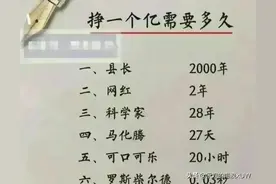 挣一个亿需要多久
一、县长 2000年
二、网红 2年
三、科学家 28年
四、马化腾 27天
五、可口可乐 20小时
六、罗斯柴尔德 0.03秒